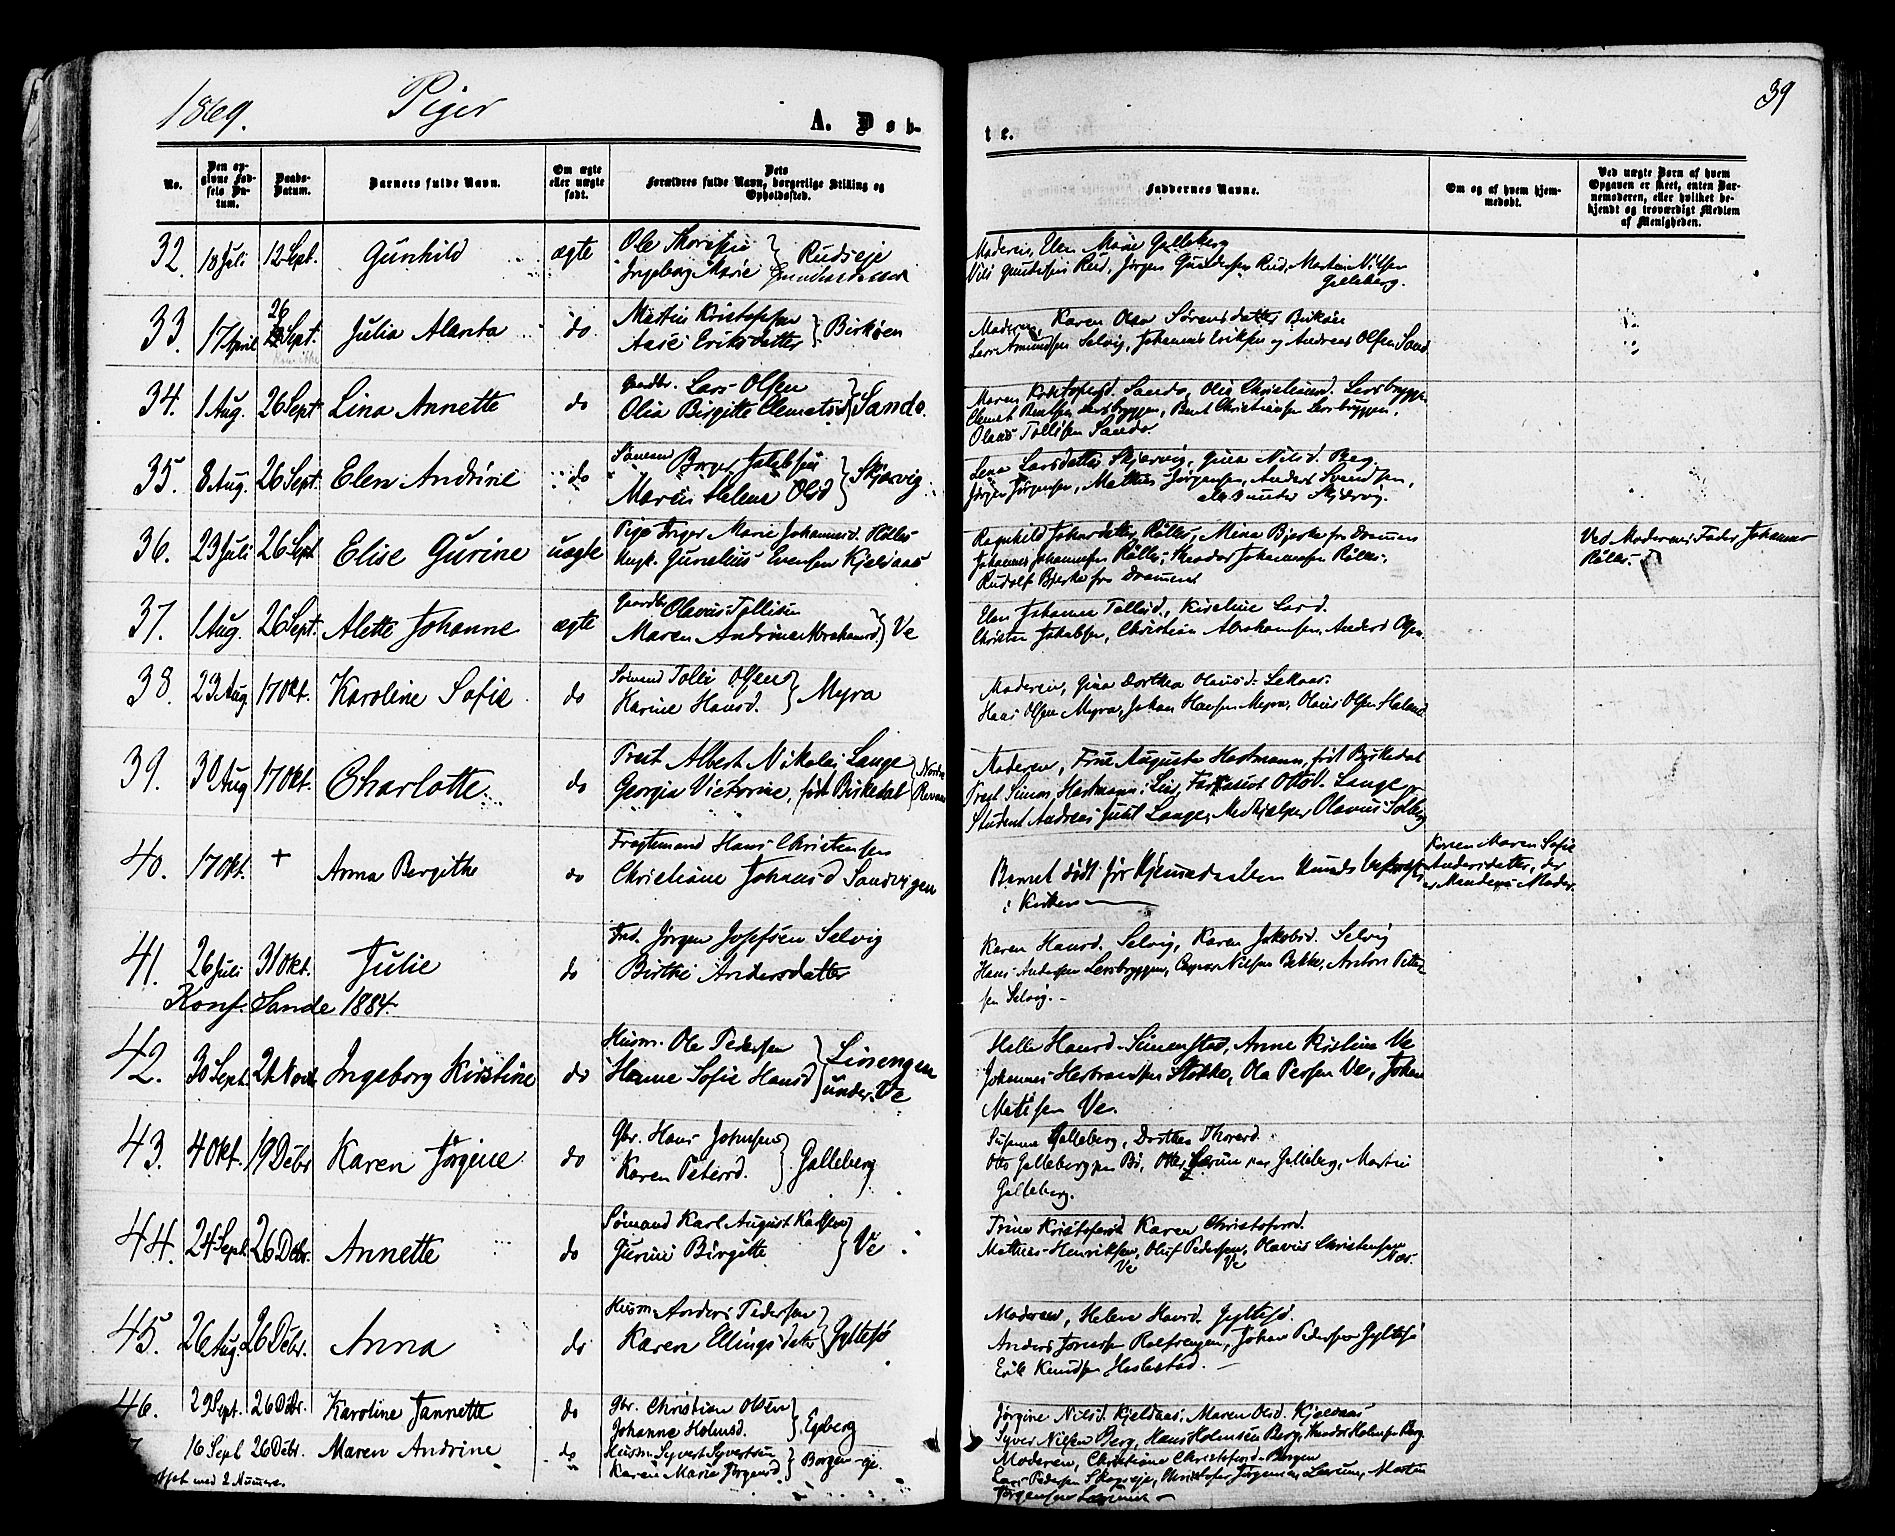 1869. Piger
A. Døb-
te.
39
No.
Den opgivne Fødsels Datum.
Daabs-Datum.
Barnets fulde Navn.
Om ægte eller uægte født.
Dets Forældres fulde Navn, borgerlige Stilling og Opholdssted.
Faddernes Navne.
Om og af hvem hjemmedøbt.
Ved uægte Børn af hvem Opgaven er skeet, enten Barnemoderen, eller hvilket bekjendt og troværdigt Medlem af Menigheden.
32. 18 Juli 12 Sept. Gunhild ægte Ole Thorsen Rudseje
Ingeborg Marie
Moderen, Elen Marie Galleberg
Rud, Jørgen Gundersen Rud, Martin Nilsen
Galleberg.
33. 17 April 26 Sept. Julia Alanta do Martin Kristofsen
Aase Eriksdatter Birkøen
Moderen, Karen Olea Sørensdatter Birkøen
Lars Amundsen Selvig, Johannes Eriksen og Andreas Olsen Sand
34. 1 Aug. 26 Sept. Lina Annette do Gaardbr. Lars Olsen
Olia Birgitte Clemetsd. Sando.
Maren Kristofersd. Sando, Olia Christiansd. Lersbryggen
Clemet Bentsen Lersbryggen, Bent Christiansen Lersbryggen,
Olaus Tollisen Sando.
35. 8 Aug. 26 Sept. Elen Andrine do Sømand Borger Jakobsen
Maren Helene Olsd Skjærvig
Lena Larsdatter Skjervig, Gina Nilsd. Berg
Jørgen Jørgensen, Mathias Jørgensen, Anders Svendsen,
alle 3 under Skjærvig.
36. 23 Juli 26 Sept Elise Gurine uægte Pige Inger Marie Johannesd. Røllis
Ungk. Gunelius Evensen Kjeldaas
Ragnhild Johansdatter Røllis, Mina Bjerke fra Drammen
Johannes Johannesen Røllis, Theodor Johannesen Røllis,
Rudolf Bjerke fra Drammen
Ved Moderens Fader, Johannes
Røllis.
37. 1 Aug. 26 Sept. Alette Johanne ægte Gaardbr Olavus Tollisen
Maren Andrine Abrahamsd Ve
Elen Johanna Tollisd., Kirstine Larsd.
Christen Jakobsen, Christian Abrahamsen, Anders Olsen
38. 23 Aug. 17 Okt. Karoline Sofie do Sømand Tolli Olsen
Karine Hansd. Myra
Moderen, Gina Dorthea Olausd. Lekaas
Haas Olsen Myra, Johan Hansen Myra, Olaus Olsen Haland
39. 30 Aug 17 Okt. Charlotte do Præst Albert Nikolai Lange
Georgia Victorine, født Birkedal Nordre Revaa
Moderen, Frue Augusta Hartmann, født Birkedal
Præst Simon Hartmann: Lier, Farmaceut Otto V. Lange,
Student Andreas Juul Lange, Medhjælper Olavus Solberg
40. 17 Okt. + Anna Bergithe do Fragtemand Hans Christensen
Christiane Johansd Sandvigen
Barnet dødt før Hjemmedaaben kunde bekræftes
i Kirken
Konen Maren Sofie
Andersdatter, der
er Mandens Moder.
41. 26 Juli 31 Okt. Julie do Ind. Jørgen Josefsen Selvig
Birthe Andersdatter
Konf. Sande 1884.
Karen Hansd. Selvig, Karen Jakobsd. Selvig
Hans Andersen Lersbryggen, Casper Nilsen Bekke, Anton Peter-
sen Selvig.
42. 30 Sept. 21 Novb Ingeborg Kirstine do Husm. Ole Pedersen
Hanne Sofie Hansd Linengen
under Ve
Helle Hansd. Simenstad, Anne Kristine Ve
Johannes Herbransen Stokke, Ola Persen Ve, Johan
Matisen Ve.
43. 4 Okt. 19 Debr Karen Jørgine do Gbr. Hans Johnsen
Karen Petersd. Galleberg
Susanne Galleberg, Dorthea Thorsd.
Otto Galleberg paa Bø, Otter Hærum paa Galleberg, Martin
Galleberg.
44. 24 Sept. 26 Debr. Annette do Sømand Karl August Karlsen
Gurine Birgitte Ve
Trine Kristofersd. Karen Christofersd.
Mathias Henriksen, Oluf Pedersen, Olavus Christensen
Ve Ve Nær.
45. 26 Aug. 26 Debr. Anna do Husm Anders Pedersen
Karen Ellingsdatter Gyltesø
Moderen, Helene Hansd. Gyltesø.
Anders Jonassen Rolfsengen, Johan Pedersen Gyltesø
Erik Knudsen Haslestad.
46. 29 Sept. 26 Debr. Karoline Jannette do Gbr. Christian Olsen
Johanne Holmsd. Egeberg
Jørgine Nilsd. Kjeldaas, Maren Olsd. Kjeldaas
Syver Nilsen Berg, Hans Holmsen Berg, Knud Holmsen Berg.
16 Sept 26 Debr. Maren Andrine do Husm. Syvert Syvertsen
Karen Marie Jørgensd. Borgen eje.
Moderen, Christiane Christofersd. Borgen
Lars Pedersen Skogseje, Christofer Jørgensen Lærum, Martin
Jørgensen Lærum
med 2 Numere.